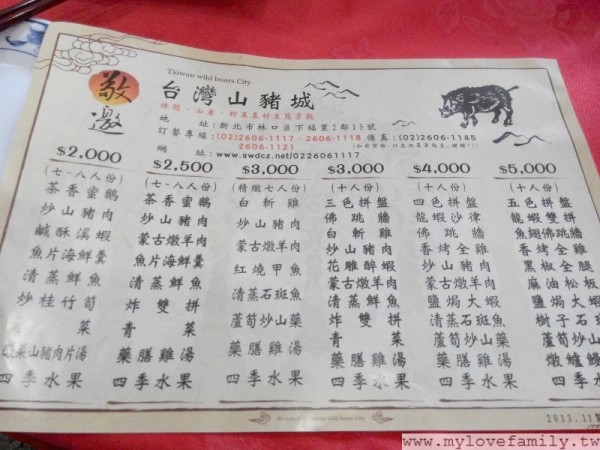 敬邀
Taiwan wild boars City
台灣山豬城
地 址:新北市林口區下福里2鄰15號
訂餐專線:(02)2606-1117、2606-1118 傳真:(02)2606-1145
2606-1121
網 址:www.gwdcz.net/0226061117
$2,000
(七、八人份)
茶香蜜鵝
炒山豬肉
鹹酥溪蝦
魚片海鮮羹
清蒸鮮魚
炒桂竹筍
菜
菜山豬肉片湯
四季水果
$2,500
(七、八人份)
茶香蜜鵝
炒山豬肉
蒙古燉羊肉
魚片海鮮羹
清蒸鮮魚
炸雙拼
青菜
藥膳雞湯
四季水果
$3,000
(精緻七人份)
白斬雞
炒山豬肉
蒙古燉羊肉
紅燒甲魚
清蒸石斑魚
蘆筍炒山藥
藥膳雞湯
四季水果
$3,000
(十人份)
三色拼盤
佛跳牆
白斬雞
炒山豬肉
花雕醉蝦
蒙古燉羊肉
清蒸鮮魚
炸雙拼
青菜
藥膳雞湯
四季水果
$4,000
(十人份)
四色拼盤
龍蝦沙律
佛跳牆
香烤全雞
炒山豬肉
蒙古燉羊肉
鹽焗大蝦
清蒸石斑魚
蘆筍炒山藥
藥膳雞湯
四季水果
$5,000
(十人份)
五色拼盤
龍蝦雙拼
魚翅佛跳牆
香烤全雞
黑椒全腿
麻油松板
鹽焗大蝦
樹子石斑
蘆筍炒山
燉鱸鰻
四季水果
2013.11
www.mylovefamily.tw